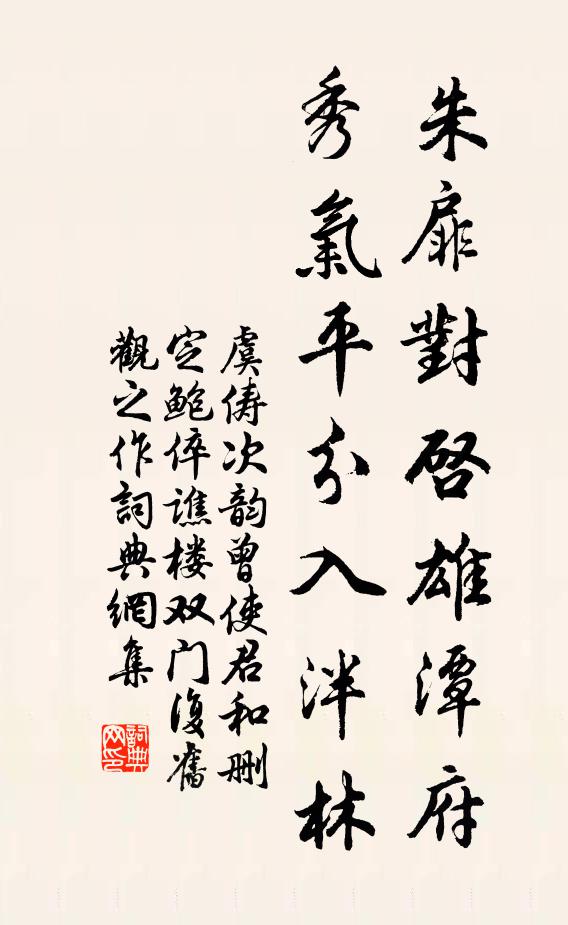 朱扉對啓雄潭府
秀氣平分入泮林
虞俦次韵曾使君和删
定鲍倅譙楼双门復舊
觀之作詞典網集
詞典网印